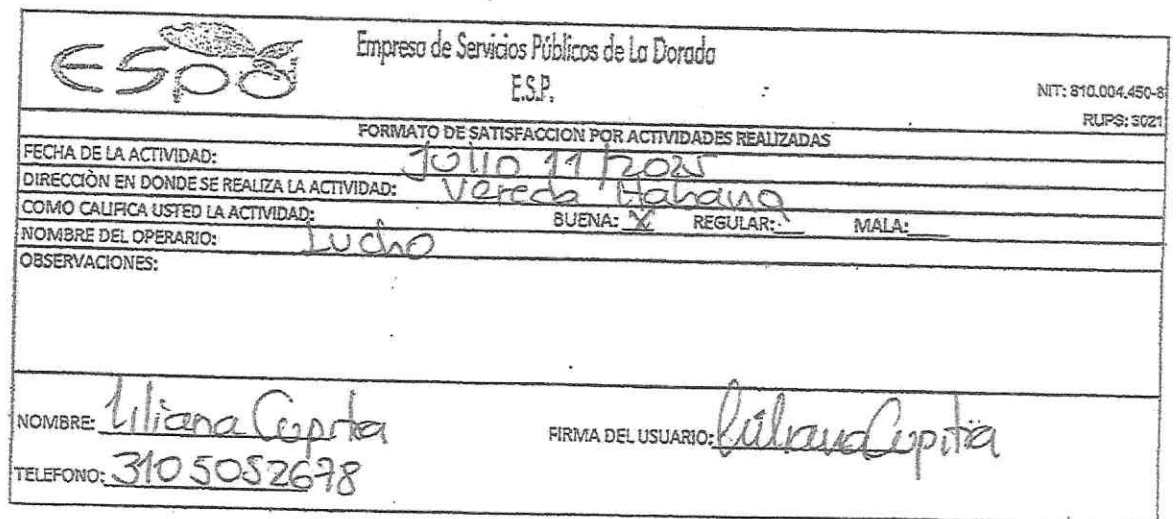 ESPD
Empresa de Servicios Públicos de La Dorada
E.S.P.
NIT: 810.004.450-8
RUPS: 3021
FORMATO DE SATISFACCION POR ACTIVIDADES REALIZADAS
FECHA DE LA ACTIVIDAD: Julio 11/2025
DIRECCIÒN EN DONDE SE REALIZA LA ACTIVIDAD: Vereda Habana
COMO CALIFICA USTED LA ACTIVIDAD: BUENA: X REGULAR: MALA:
NOMBRE DEL OPERARIO: Lucho
OBSERVACIONES:
NOMBRE: Liliana Cupitra FIRMA DEL USUARIO: Liliana Cupitra
TELEFONO: 310 5052678